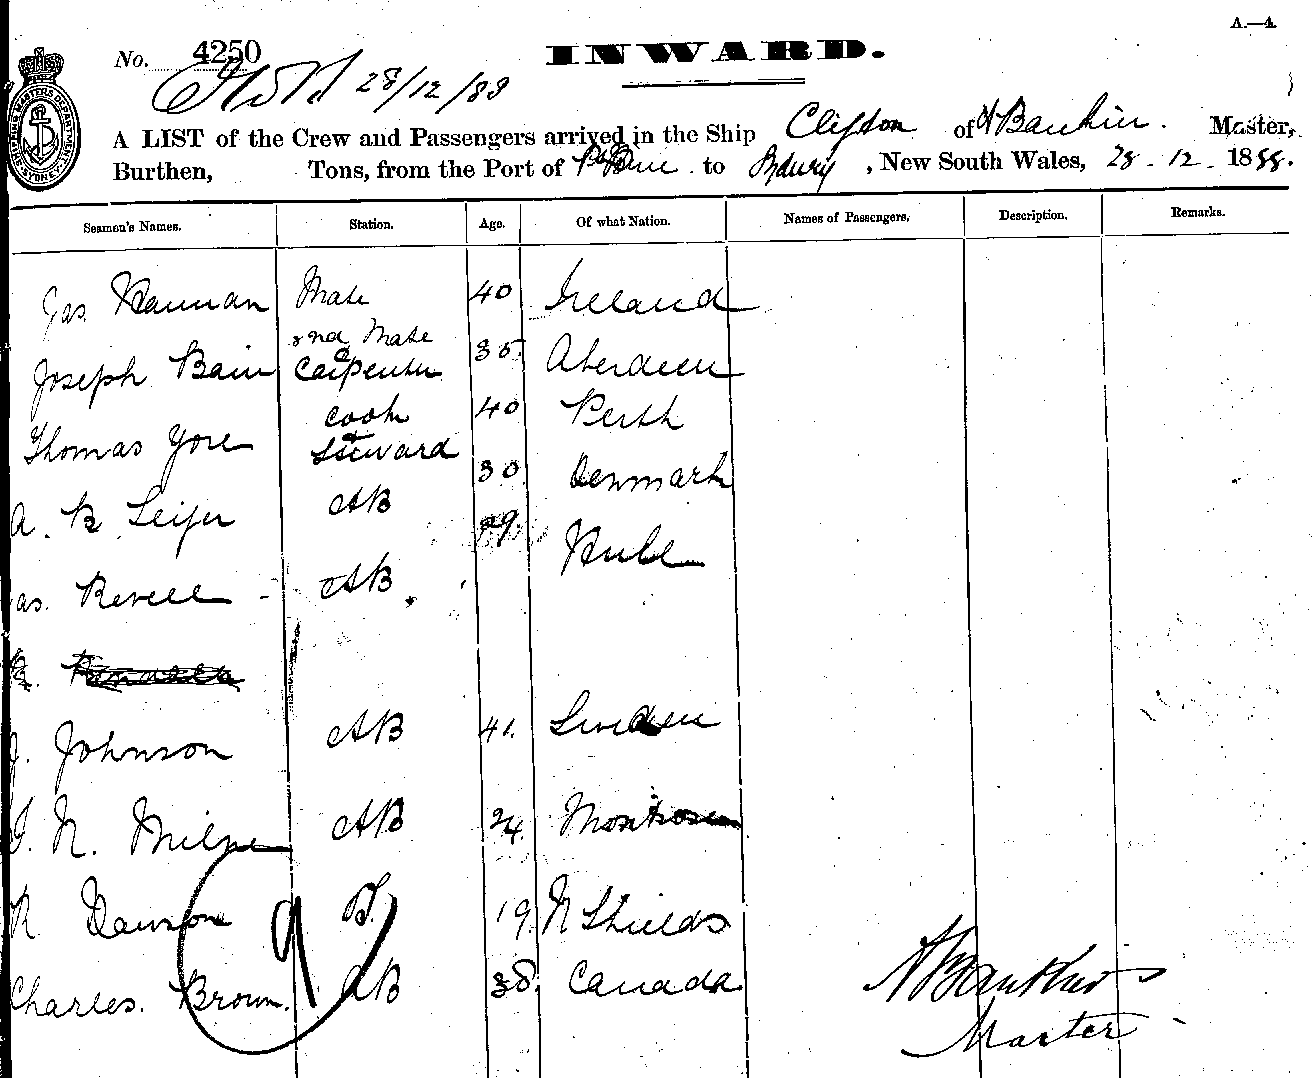 A.—4.
No. 4250
INWARD.
28/12/88
A LIST of the Crew and Passengers arrived in the Ship Clifton of Master,
Burthen, Tons, from the Port of to Sydney, New South Wales, 28 - 12 - 1888.
Seamen's Names. Station. Age. Of what Nation. Names of Passengers. Description. Remarks.
Jas Hannan Mate 40 Ireland
Joseph Bain 2nd Mate Carpenter 35 Aberdeen
Thomas Yore Cook & Steward 40 Perth
A. B. Leifer AB 30 Denmark
as. Revell AB 29 Hull
J. Johnson AB 41. Sweden
J. N. Milne AB 24 Montrose
N Dawson 19. N Shields
9
Charles. Brown. AB 38. Canada
Master